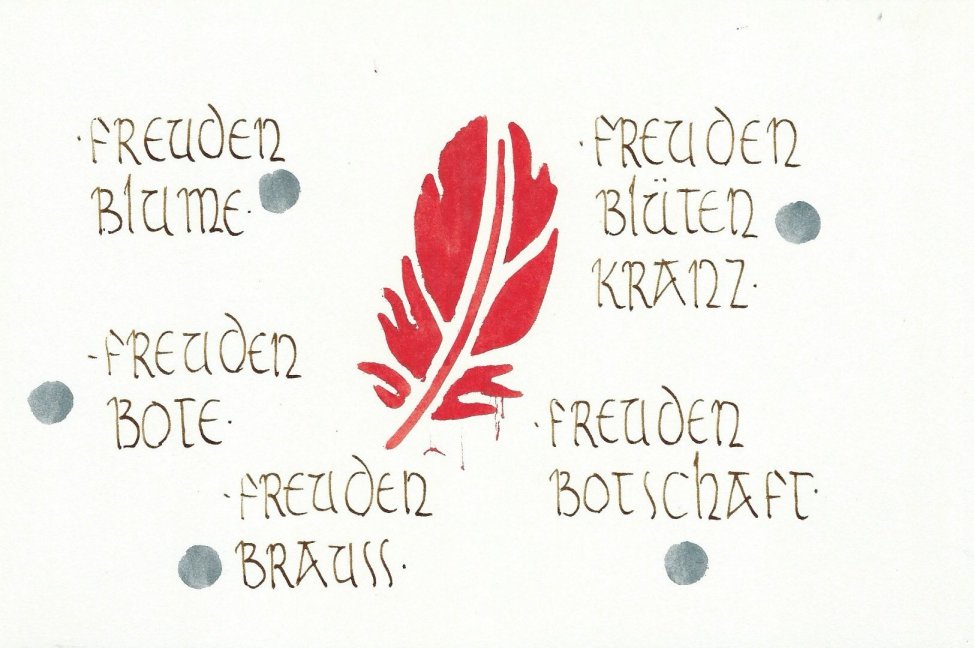 ·FREUDEN
BLUME·
·FREUDEN
BLÜTEN
KRANZ·
-FREUDEN
BOTE·
·FREUDEN
BOTSCHAFT·
·FREUDEN
BRAUSS·